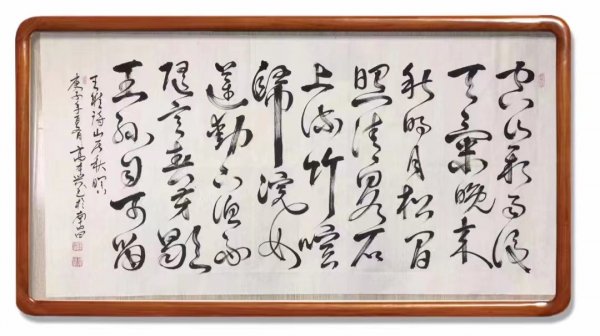 空山新雨後
天氣晚来
秋明月松间
照清泉石
上流竹喧
歸浣女
莲動下渔舟
随意春芳歇
王孫自可留
王維詩山居秋暝
庚子年